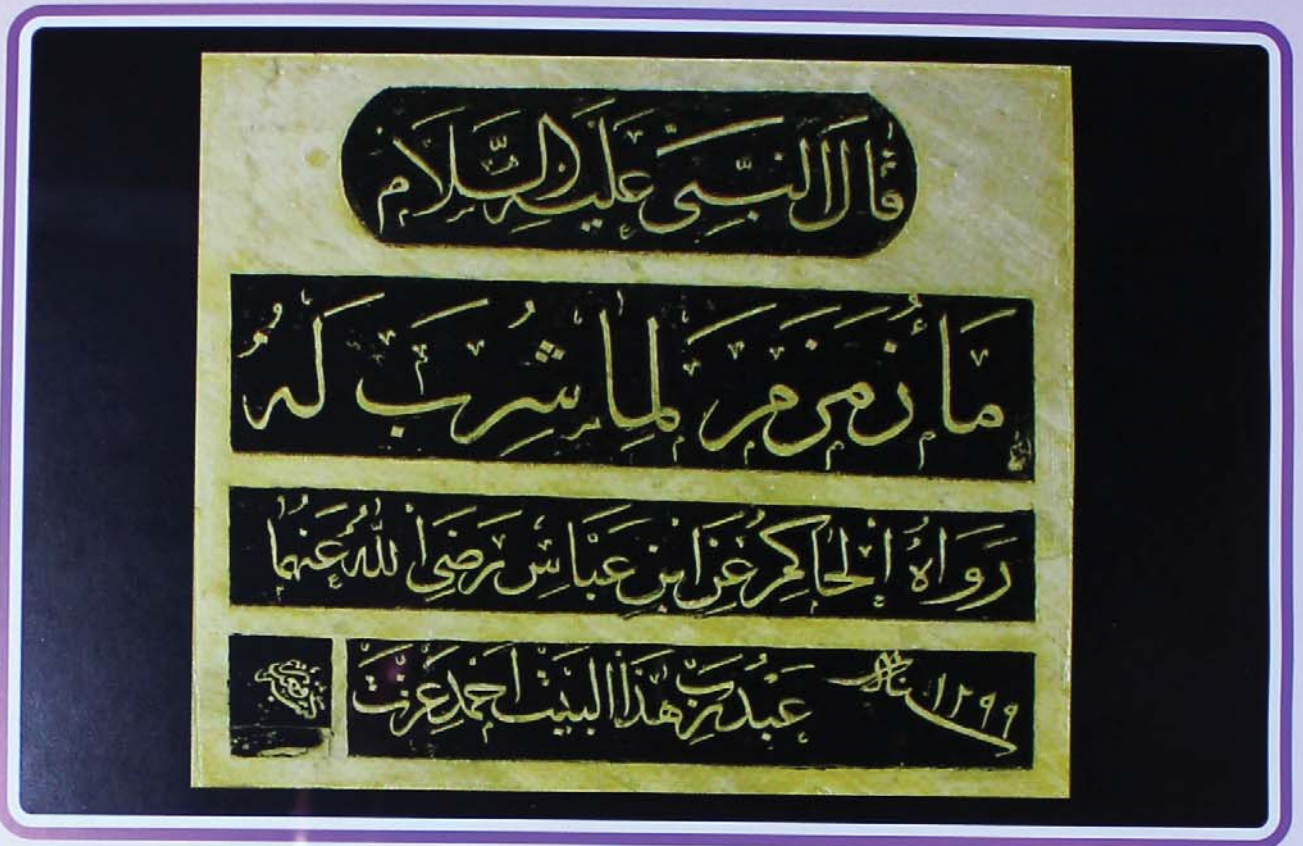 قَالَ النَّبِىُّ عَلَيْهِ السَّلَام
مَاءُ زَمْزَمَ لِمَا شُرِبَ لَهُ
رَوَاهُ الْحَاكِمُ عَنِ ابْنِ عَبَّاسٍ رَضِىَ اللهُ عَنْهُمَا
سنة ١٢٩٩ عَبْدُ رَبِّ هَذَا الْبَيْتِ اَحْمَدْ عِزَّتْ